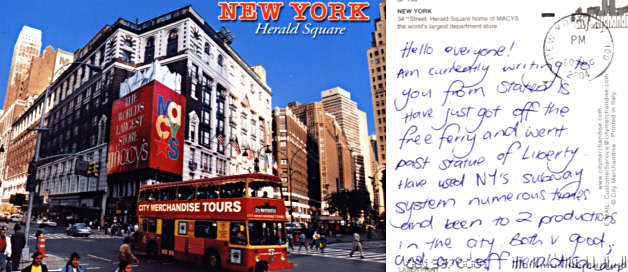 NEW YORK
Herald Square
THE
WORLD'S
LARGEST
STORE
macy's
MACY'S
CITY MERCHANDISE TOURS
NEW YORK
34th Street, Herald Square home of MACYS
the world's largest department store
City Merchandi
NEW YORK
PM
2004
Hello everyone!
Am currently writing to
you from Staten Is
Have just got off the
free ferry and went
past statue of Liberty.
Have used NY's subway
system numerous times
and been to 2 productions
in the city. Both v good,
and one off
www.citymerchandise.com
E MAIL: CustomerService@citymerchandise.com
© City Merchandise • Printed in Italy